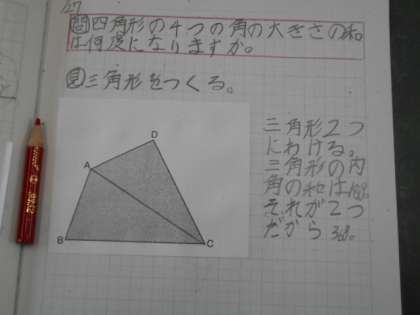 1/27
問 四角形の4つの角の大きさの和
は何度になりますか。
見 三角形をつくる。
D
A
B
C
三角形2つ
にわける。
三角形の内
角の和は180°
それが2つ
だから360°